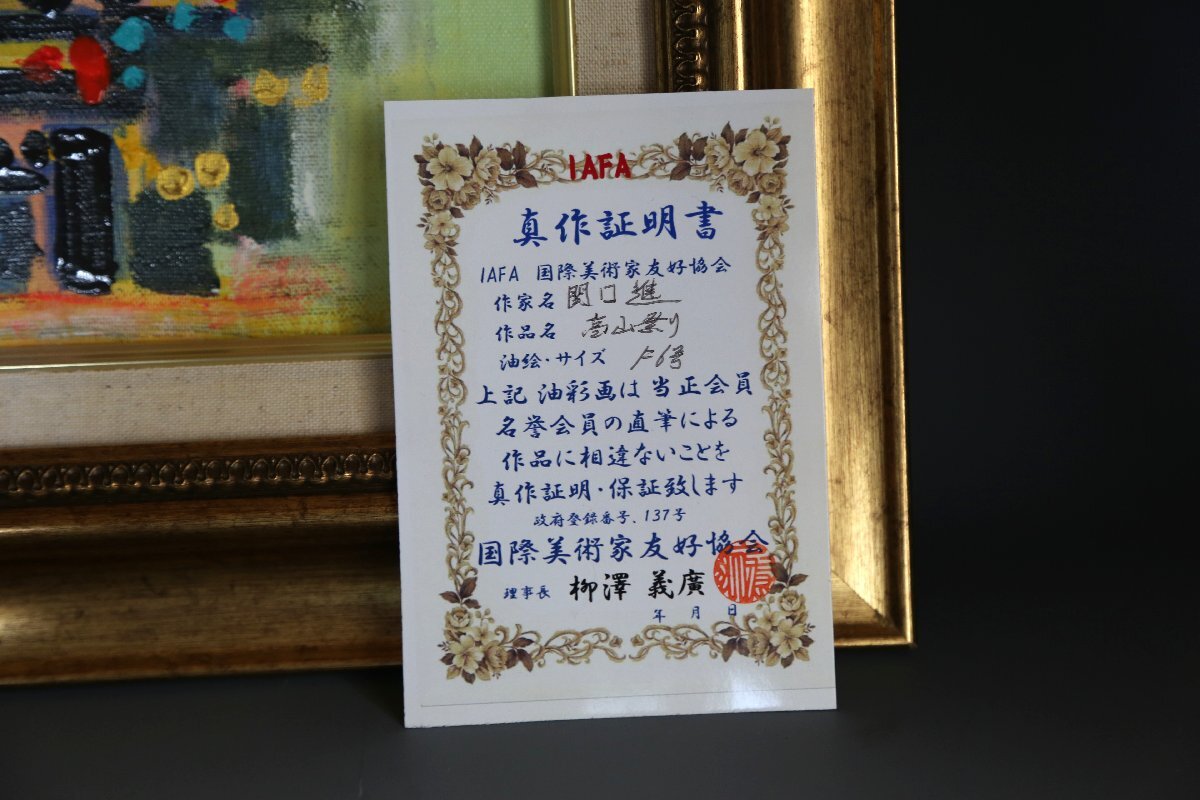 IAFA
真作証明書
IAFA 国際美術家友好協会
作家名 関口進
作品名 高山祭り
油絵・サイズ F6号
上記 油彩画は 当正会員
名誉会員の直筆による
作品に相違ないことを
真作証明・保証致します
政府登録番号、137号
国際美術家友好協会
理事長 柳澤 義廣
年 月 日